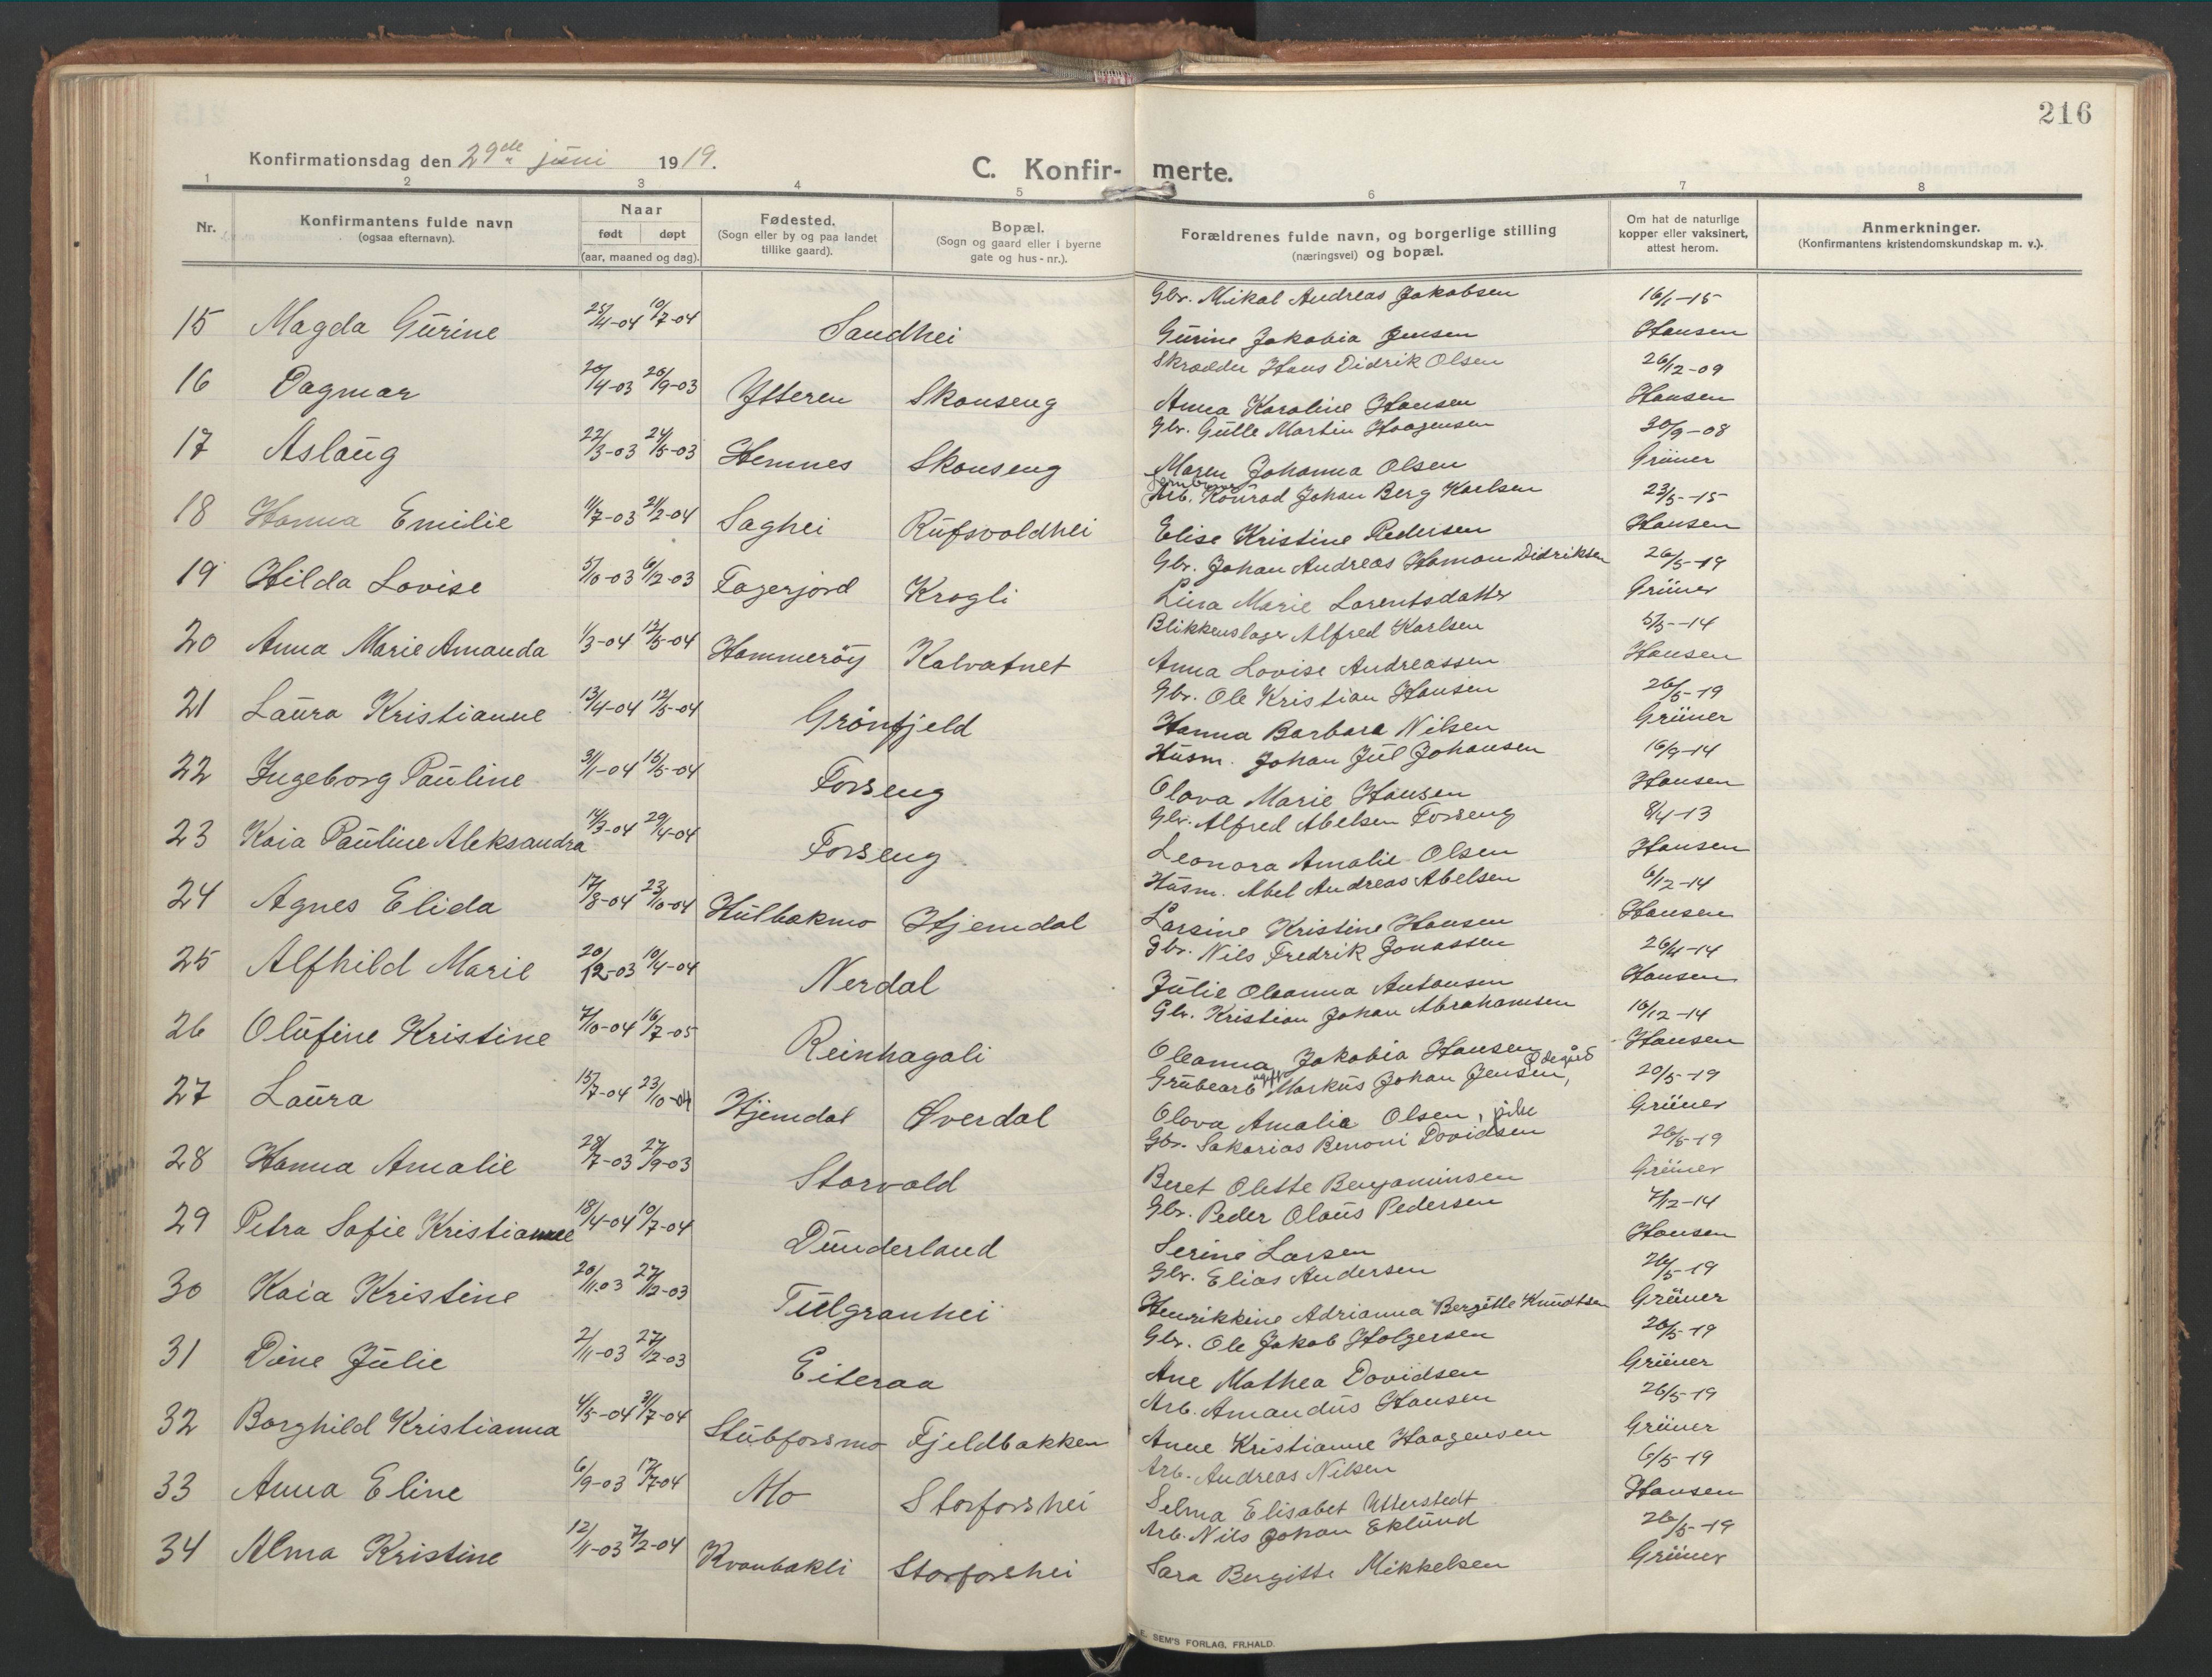 216
Konfirmationsdag den 29de juni 1919.
C. Konfirmerte.
1 2 3 4 5 6 7 8
Nr.
Konfirmantens fulde navn
(ogsaa efternavn).
Naar
født døpt
(aar, maaned og dag).
Fødested.
(Sogn eller by og paa landet
tillike gaard).
Bopæl.
(Sogn og gaard eller i byerne
gate og hus-nr.).
Forældrenes fulde navn, og borgerlige stilling
(næringsvei) og bopæl.
Om hat de naturlige
kopper eller vaksinert,
attest herom.
Anmerkninger.
(Konfirmantens kristendomskundskap m. v.).
Gbr. Mikal Andreas Jakobsen 16/1-15
15 Magda Gurine 25/4-04 10/7-04 Sandhei Gurine Jakobia Jensen Hansen
Skrædder Hans Didrik Olsen 26/12-09
16 Dagmar 20/4-03 20/9-03 Ytteren Skonseng Anna Karoline Hansen Hansen
Gbr. Gulle Martin Haagensen 30/9-08
17 Aslaug 22/3-03 24/5-03 Hemnes Skonseng Maren Johanna Olsen Grüner
Arb. Konrad Johan Berg Karlsen 23/5-15
18 Hanna Emilie 11/7-03 21/2-04 Saghei Rufsvoldhei Elise Kristine Pedersen Hansen
Gbr. Johan Andreas Hamon Didriksen 26/5-19
19 Hilda Lovise 5/10-03 6/12-03 Fagerjord Krogli Lina Marie Lorentsdatter Grüner
Blikkenslager Alfred Karlsen 5/5-14
20 Anna Marie Amanda 1/3-04 12/5-04 Hammerøy Kalvatnet Anna Lovise Andreassen Hansen
Gbr. Ole Kristian Hansen 26/5-19
21 Laura Kristianne 13/4-04 12/5-04 Grønfjeld Hanna Barbara Nilsen Grüner
Husm. Johan Jul Johansen 16/9-14
22 Ingeborg Pauline 31/1-04 15/5-04 Forseng Olava Marie Hansen Hansen
Gbr. Alfred Abelsen Forseng 8/4-13
23 Kaia Pauline Aleksandra 14/3-04 29/4-04 Forseng Leonora Amalie Olsen Hansen
Husm. Abel Andreas Abelsen 6/12-14
24 Agnes Elida 17/8-04 23/10-04 Hulbakmo Hjemdal Larsine Kristine Hansen Hansen
Gbr. Nils Fredrik Jonassen 26/4-14
25 Alfhild Marie 20/12-03 10/4-04 Nerdal Julie Oleanna Antonsen Hansen
Gbr. Kristian Johan Abrahamsen 16/12-14
26 Olufine Kristine 7/10-04 16/7-05 Reinhagali Oleanna Jakobia Hansen Hansen
Grubearb. ugift Markus Johan Jensen, Ødegård 20/5-19
27 Laura 15/7-04 23/10-04 Hjemdal Øverdal Olava Amalia Olsen, pike Grüner
Gbr. Sakarias Benoni Davidsen 26/5-19
28 Hanna Amalie 28/7-03 27/9-03 Storvold Beret Olette Benjaminsen Grüner
Gbr. Peder Olaus Pedersen 7/12-14
29 Petra Sofie Kristianne 18/4-04 10/7-04 Dunderland Serine Larsen Hansen
Gbr. Elias Andersen 26/5-19
30 Kaia Kristine 20/11-03 27/12-03 Tulgranhei Henrikkine Adrianna Bergitte Knudtsen Grüner
Gbr. Ole Jakob Holgersen 26/5-19
31 Dine Julie 2/11-03 27/12-03 Eiteraa Ane Mathea Davidsen Grüner
Arb. Amandus Hansen 26/5-19
32 Borghild Kristianna 4/5-04 31/7-04 Stubforsmo Fjeldbakken Anne Kristianne Haagensen Grüner
Arb. Andreas Nilsen 6/5-19
33 Anna Eline 6/9-03 17/7-04 Mo Storforshei Selma Elisabet Utterstedt Hansen
Arb. Nils Johan Eklund 26/5-19
34 Alma Kristine 12/11-03 7/2-04 Kvanbakli Storforshei Sara Bergitte Mikkelsen Grüner
E. SEM'S FORLAG, FR.HALD.